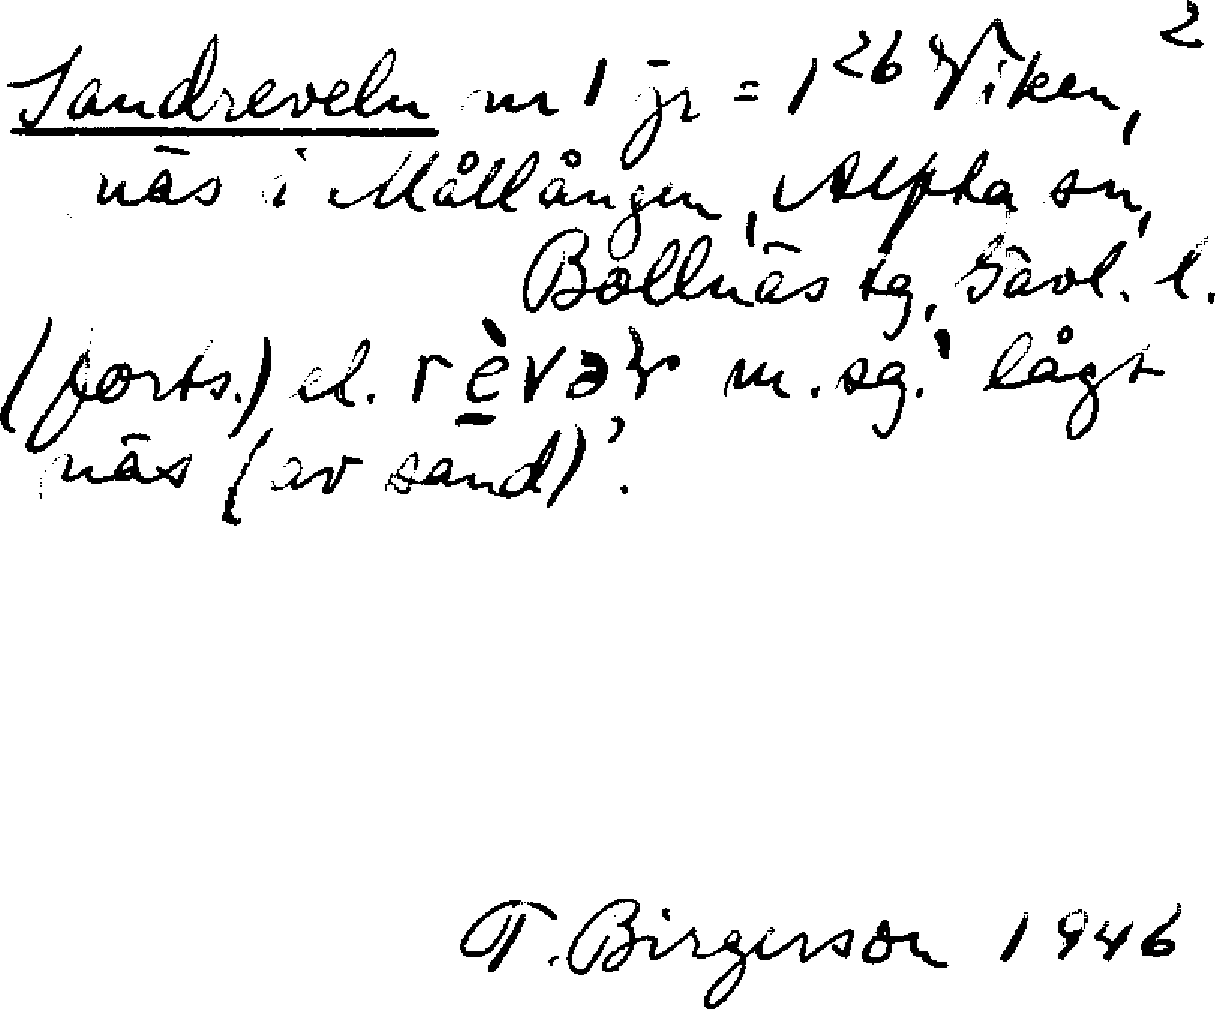 2
Sandreveln m 1 jr = 1²⁶ Viken,
näs i Mållången, Alfta sn,
Bollnäs tg, Gävl. l.
(forts.) el. m. sg. 'lågt
näs (av sand)'.
T. Birgerson 1946